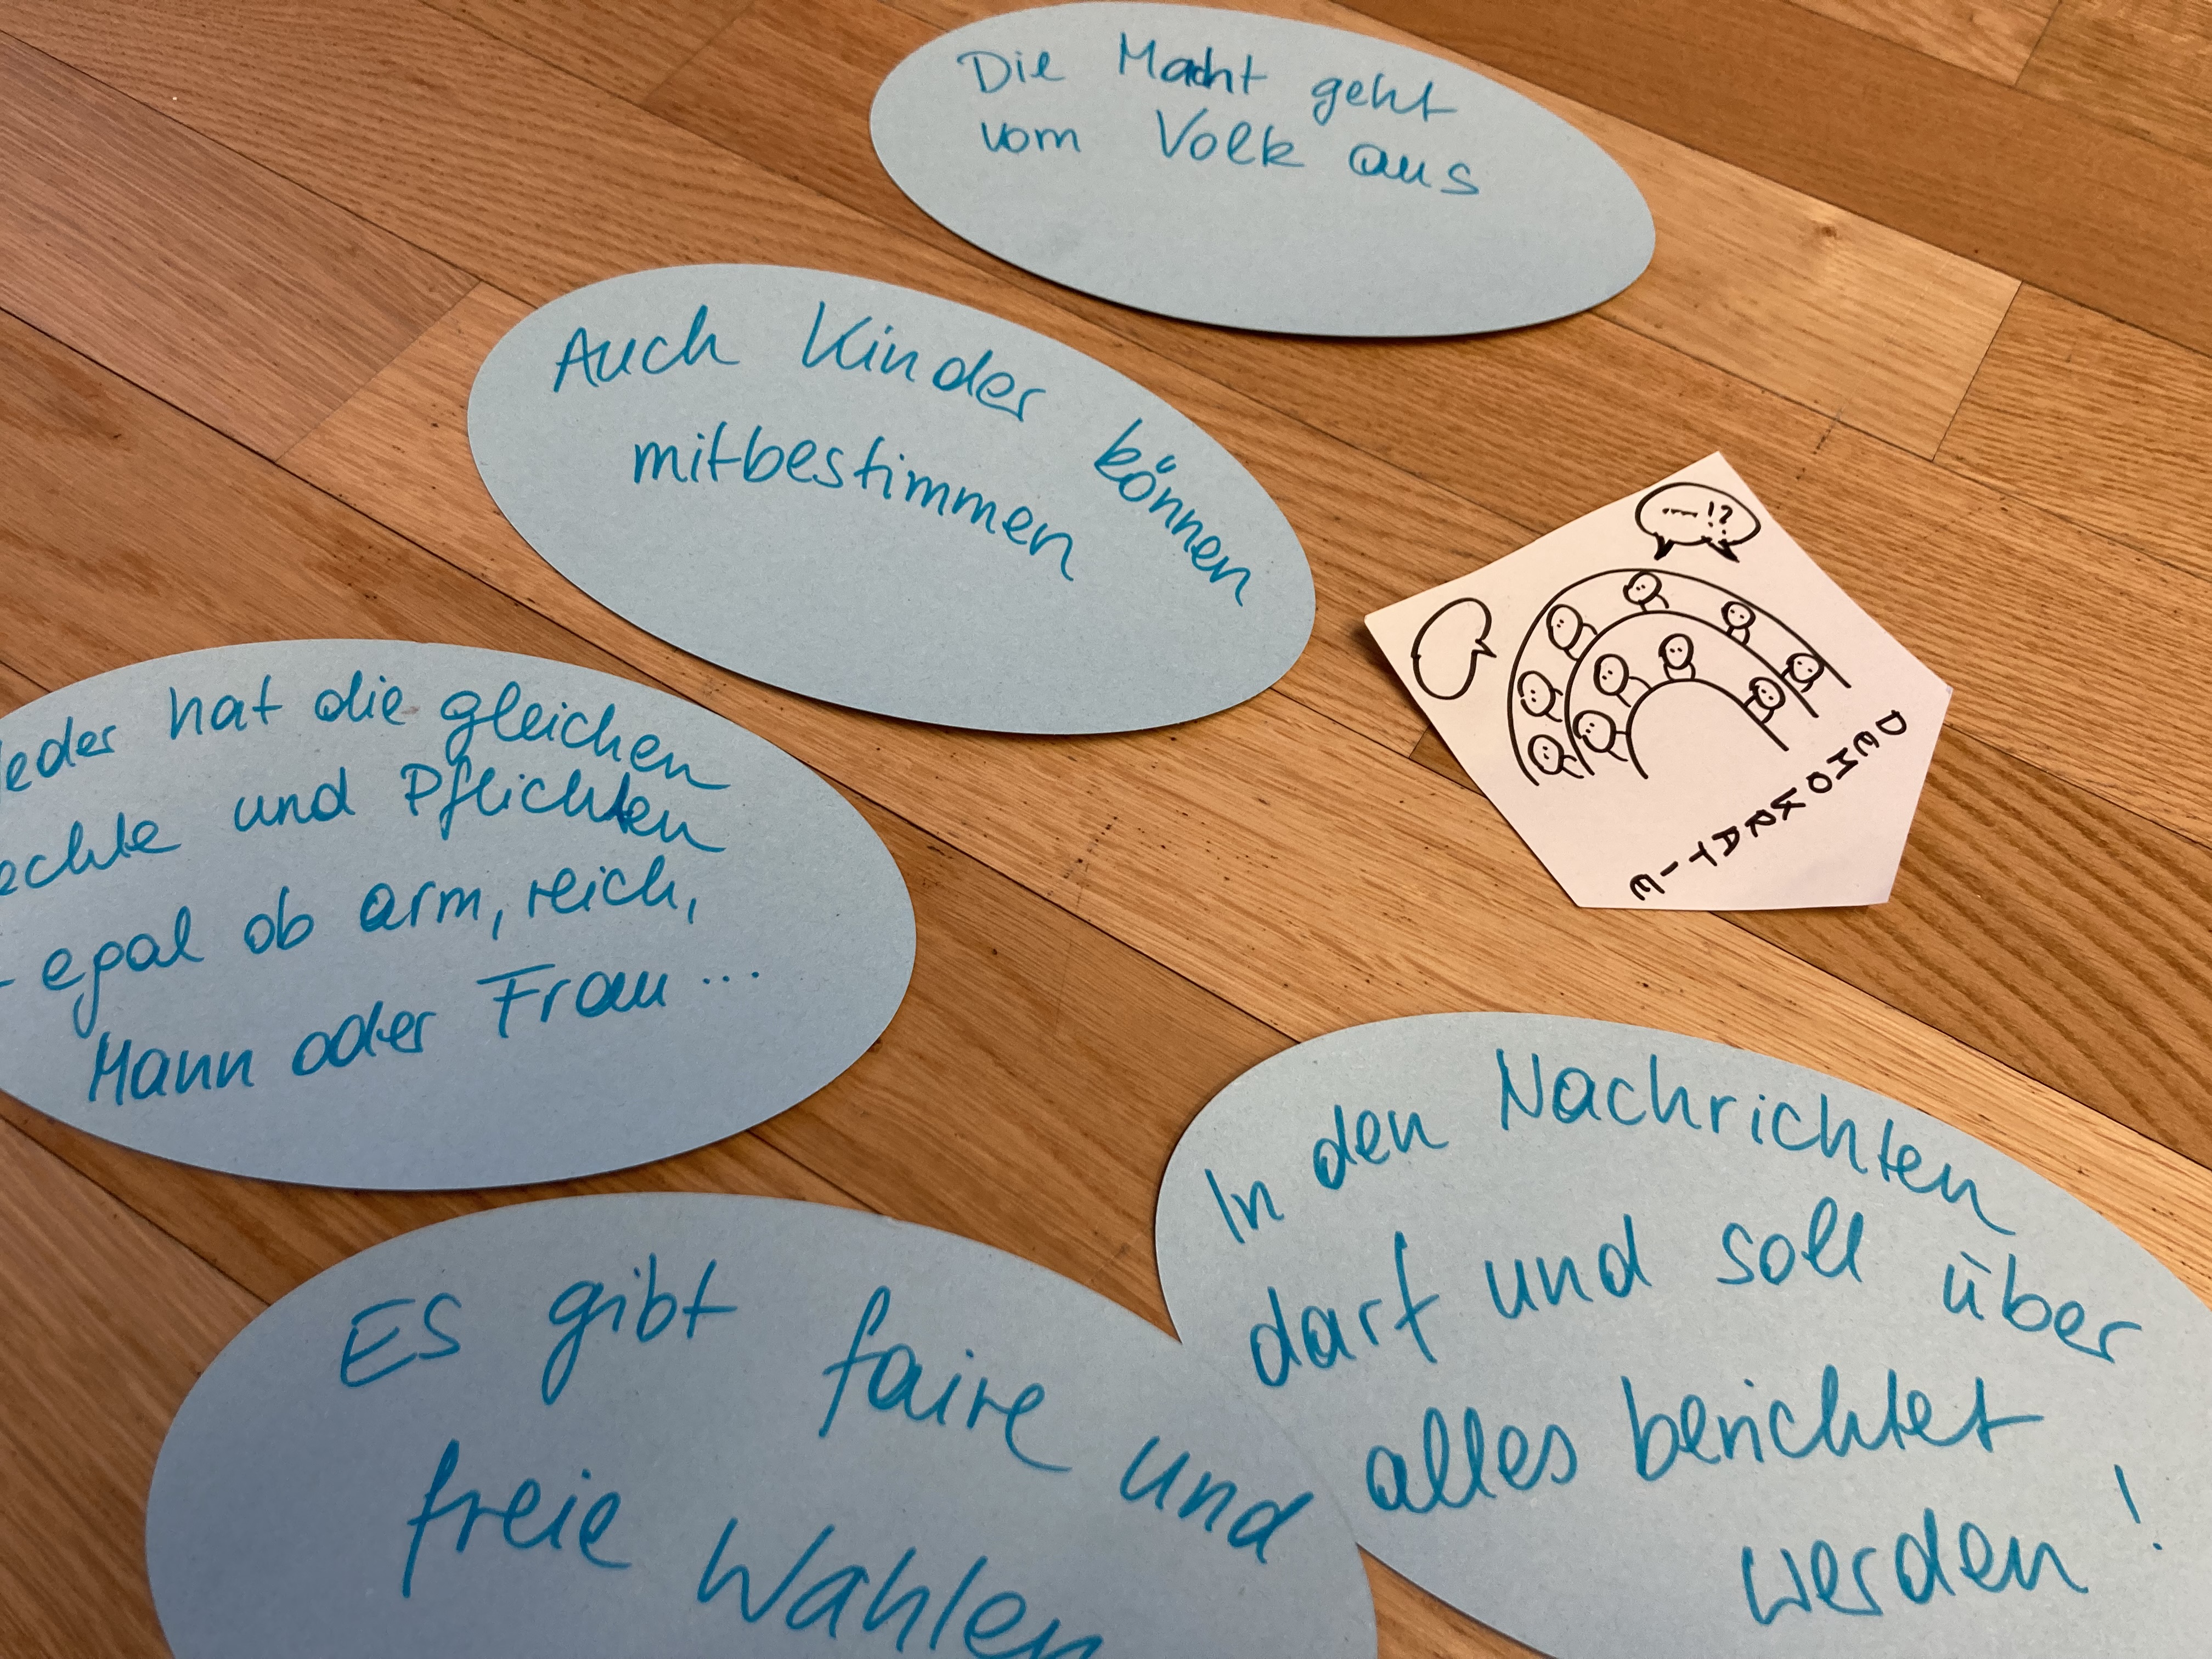 Die Macht geht
vom Volk aus
Auch Kinder können
mitbestimmen
---!?
DEMOKRATIE
Jeder hat die gleichen
echte und Pflichten
- egal ob arm, reich,
Mann oder Frau...
In den Nachrichten
darf und soll über
alles berichtet
werden!
ES gibt faire und
freie Wahlen